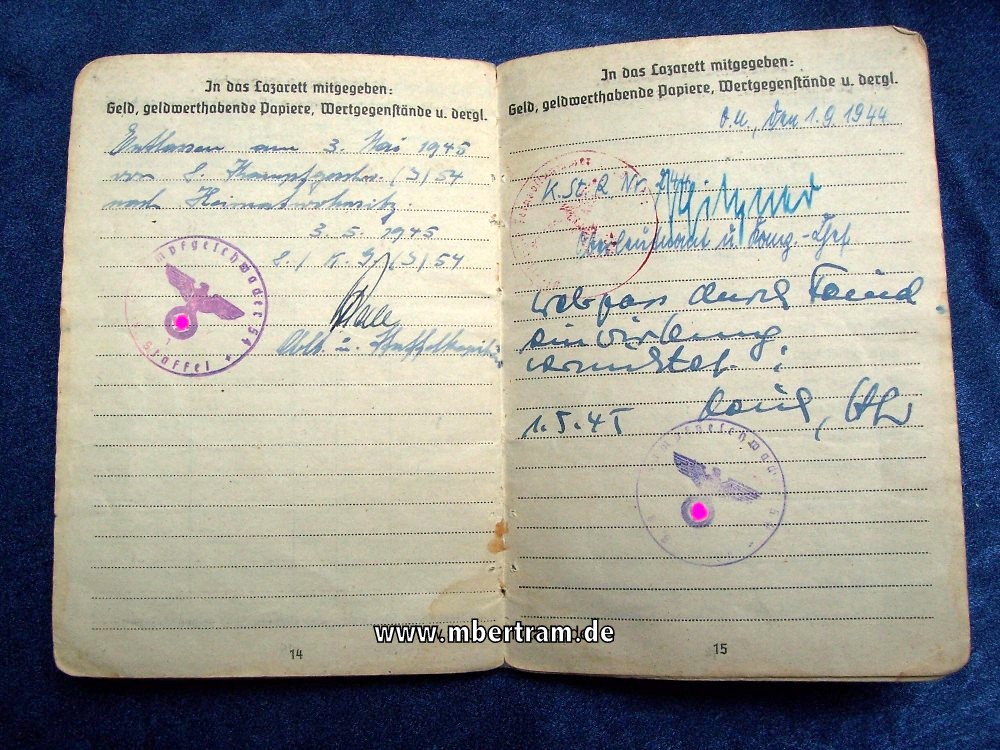 In das Lazarett mitgegeben:
Geld, geldwerthabende Papiere, Wertgegenstände u. dergl.
Entlassen am 3. Mai 1945
von 2. Kampfgeschw. (J) 54
nach Heimatwohnsitz.
3. 5. 1945
2./ K. G. (J) 54
Oblt. u. Staffelkapitän
mpfgeschwader 54
Staffel
14
In das Lazarett mitgegeben:
Geld, geldwerthabende Papiere, Wertgegenstände u. dergl.
O.U., den 1.9.1944
K. St. R Nr.
Oberleutnant u. Komp.-Chef
Wehrpass durch Feind
einwirkung
vernichtet.
1.5.45
15
www.mbertram.de